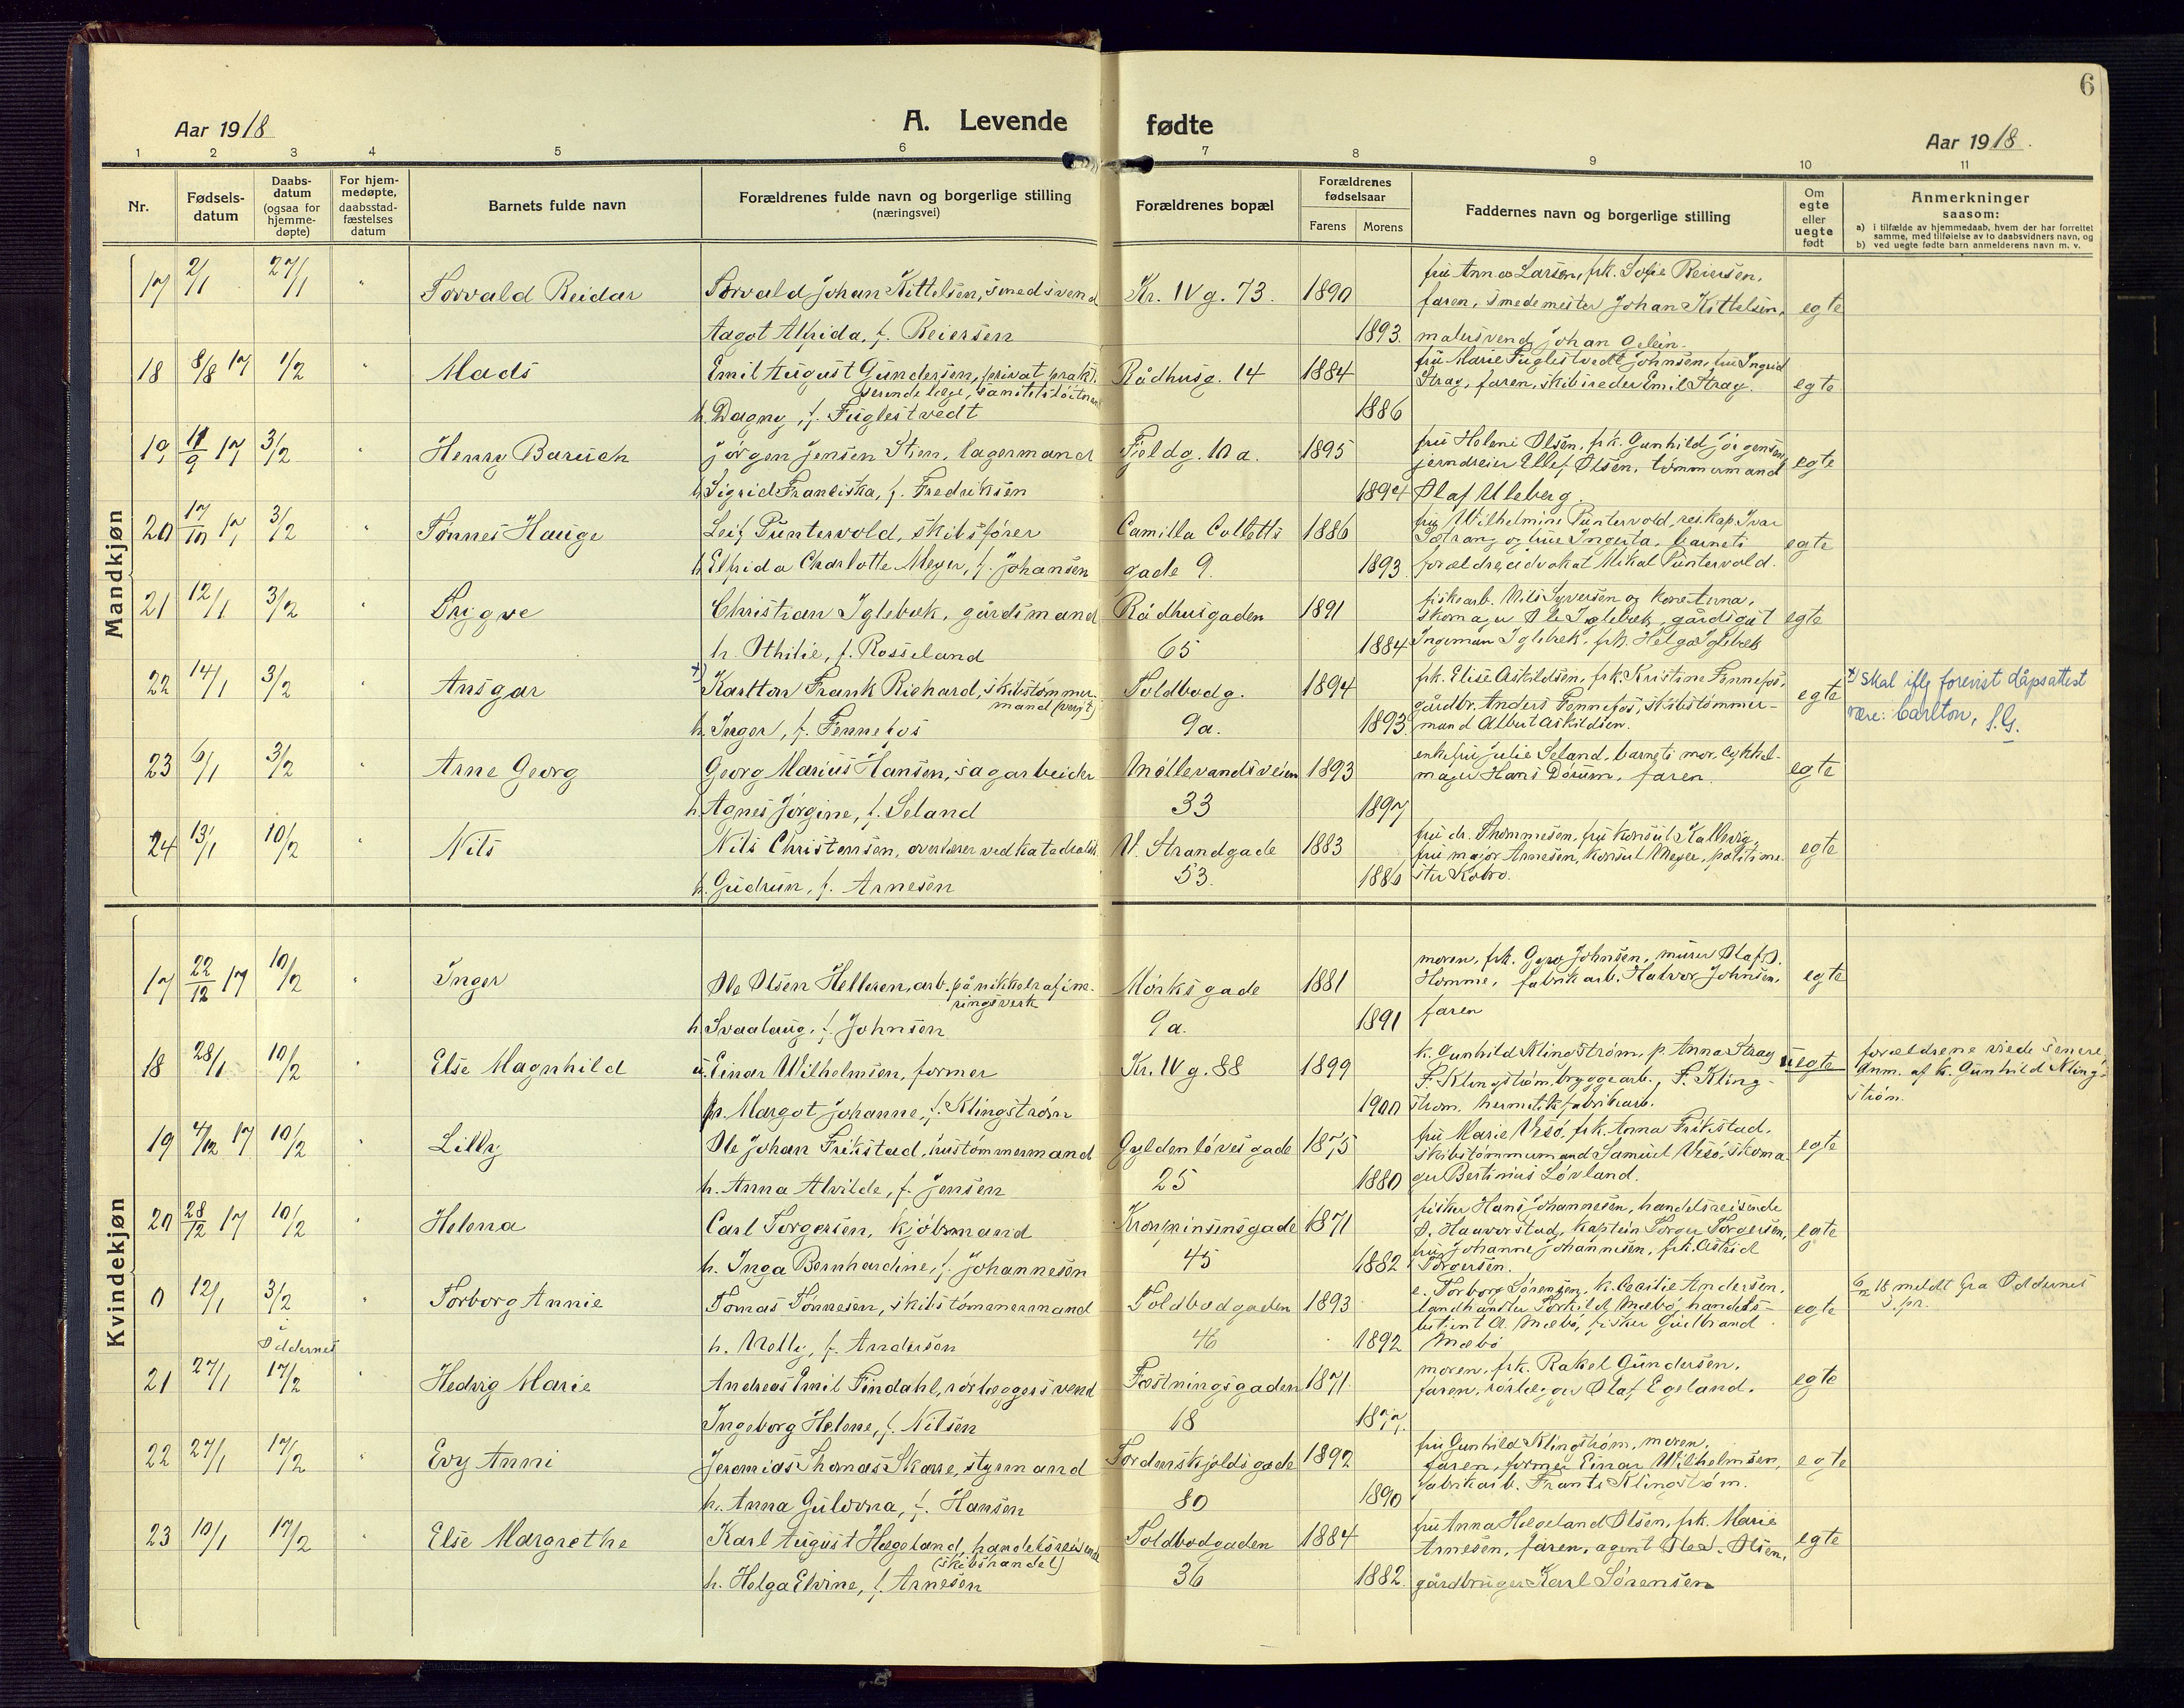 6
Aar 1918
A. Levende fødte
Aar 1918.
1 2 3 4 5 6 7 8 9 10 11
Nr.
Fødsels-
datum
Daabs-
datum
(ogsaa for
hjemme-
døpte)
For hjem-
medøpte,
daabsstad-
fæstelses
datum
Barnets fulde navn
Forældrenes fulde navn og borgerlige stilling
(næringsvei)
Forældrenes bopæl
Forældrenes
fødselsaar
Farens Morens
Faddernes navn og borgerlige stilling
Om
egte
eller
uegte
født
Anmerkninger
saasom:
a) i tilfælde av hjemmedaab, hvem der har forrettet
samme, med tilføielse av to daabsvidners navn, og
b) ved uegte fødte barn anmelderens navn m. v.
Mandkjøn
17 2/1 27/1 " Torvald Reidar Torvald Johan Kittelsen, smedsvend Kr. IV g. 73. 1890 fru Anna Larsen, frk. Sofie Reiersen,
faren, smedemester Johan Kittelsen, egte
Aagot Alfrida, f. Reiersen 1893. malersvend Johan
18 8/8 17 1/2 " Mads Emil August Gundersen, privat prakti- Rådhusg. 14 1884 fru Marie Fuglestvedt Johnsen, fru Ingrid
serende læge, Strag, faren, skibsreder Emil Strag. egte
h. Dagny, f. Fuglestvedt 1886
19 11/9 17 3/2 Henry Baruch Jørgen Jensen Stien, lagermand Fjeldg. 10 a. 1895 fru Helene Olsen, frk. Gunhild Jørgensen,
jerndreier Ellef Olsen, tømmermand egte
h. Sigrid Franciska, f. Fredriksen 1894 Olaf Uleberg.
20 17/10 17 3/2 " Tønnes Hauge Leif Puntervold, skibsfører Camilla Colletts 1886 fru Wilhelmine Puntervold, res. kap. Ivar
Sætrang og frue Ingerta, barnets egte
h. Elfrida Charlotte Meyer, f. Johansen gade 9. 1893. forældre, advokat Mikal Puntervold.
21 12/1 3/2 " Trygve Christian Iglebæk, gårdsmand Rådhusgaden 1891 fiskearb. Nils Syversen og kone
skomager Ole Iglebæk, gårdsgut egte
h. Othilie, f. Rosseland 65 1884 Ingeman Iglebæk, frk. Helga Iglebæk
22 14/1 3/2 " Ansgar x) Karlton Frank Richard, skibstømmer- Toldbodg. 1894 frk. Elise Askildsen, frk. Kristine Fennefos,
mand (verft) gårdbr. Anders Fennefos, skibstømmer- egte x) skal iflg forevist dåpsattest
h. Inger, f. Fennefos 9a. 1893 mand Albert Askildsen. være: Carlton, S.G.
23 6/1 3/2 " Arne Georg Georg Marius Hansen, sagarbeider Møllevandsveien 1893 enkefru Julie Seland, barnets mor, cykkel-
mager Hans Dørum, faren. egte
h. Agnes Jørgine, f. Seland 33 1897
24 13/1 10/2 " Nils Nils Christensen, overlærer ved katedralsk. V. Strandgade 1883 fru dr. Thommesen, fru konsul Kallevig,
fru major Arnesen, konsul Meyer, politime- egte
h. Gudrun, f. Arnesen 53. 1886 ster Kobro.
Kvindekjøn
17 22/12 17 10/2 " Inger Ole Olsen Helleren, arb. på nikkelrafine- Mørks gade 1881 moren, frk. Gyro Johnsen, murer Olaf O.
ringsverk Homme, fabrikarb. Halvor Johnsen, egte
h. Svaalaug, f. Johnsen 9a. 1891 faren
18 28/1 10/2 " Else Magnhild u. Einar Wilhelmsen, former Kr. IV g. 88 1899 k. Gunhild Klingstrøm, p. Anna Strag uegte forældrene viede senere,
F. Klingstrøm bryggearb., F. Kling- Anm. af k. Gunhild Kling-
p. Margot Johanne, f. Klingstrøm 1900 strøm. hermetikfabrikarb. strøm.
19 4/12 17 10/2 " Lilly Ole Johan Frikstad, hustømmermand Gyldenløves gade 1875 fru Marie Vesø, frk. Anna Frikstad,
skibstømmermand Samuel Vesø, skoma- egte
h. Anna Alvilde, f. Jensen 25 1880 ger Bertinius Løvland.
20 28/12 17 10/2 " Helena Carl Torgersen, kjøbmand Kronprinsensgade 1871 fisker Hans Johannesen, handelsreisende
O. Haavorstad, kaptein Torger Torgersen, egte
h. Inga Bernhardine, f. Johannesen 45 1882 fru Johanne Johannesen, frk. Astrid
Torgersen.
0 12/1 3/2 " Torborg Annie Tomas Tønnesen, skibstømmermand Toldbodgaden 1893 e. Torborg Sørensen, k. Cecilie Andersen,
i landhandler Torkild Mæbø, handels- egte 6/2 18 meldt fra Oddernes
Oddernes betjent A. Mæbø, fisker Gudbrand s. pr.
h. Nelly, f. Andersen 46 1892 Mæbø
21 27/1 17/2 Hedvig Marie Andreas Emil Findahl, rørlæggersvend Fæstningsgaden 1871. moren, frk. Rakel Gundersen,
faren, rørlægger Olaf Egeland. egte
Ingeborg Helene, f. Nilsen 18 1877.
22 27/1 17/2 " Evy Anni Jeremias Thomas Skarre, styrmand Tordenskjolds gade 1892 fru Gunhild Klingstrøm, moren,
faren, former Einar Wilhelmsen, egte
h. Anna Gulovna, f. Hansen 80 1890 fabrikarb. Frants Klingstrøm.
23 10/1 17/2 " Else Margrethe Karl August Hægeland, handelsreisende Toldbodgaden 1884 fru Anna Hægeland Olsen, frk. Marie
(skibshandel) Arnesen, faren, agent Olsen, egte
h. Helga Elvine, f. Arnesen 36 1882. gårdbruger Karl Sørensen